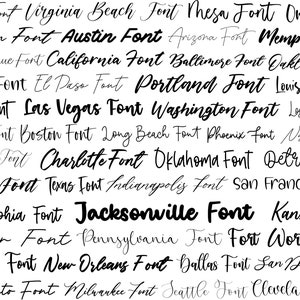 Font Virginia Beach Font Mesa Font
Font Austin Font Arizona Font Memp
Font California Font Baltimore Font Oak
Font El Paso Font Portland Font Louis
Las Vegas Font Washington Font
Font Boston Font Long Beach Font Phoenix Font
Font Charlotte Font Oklahoma Font Detr
Font Texas Font Indianapolis Font San Franc
phia Font Jacksonville Font Kan
Font Pennsylvania Font Fort Wor
Font New Orleans Font Dallas Font San D
to Font Milwaukee Font Seattle Font Clevela